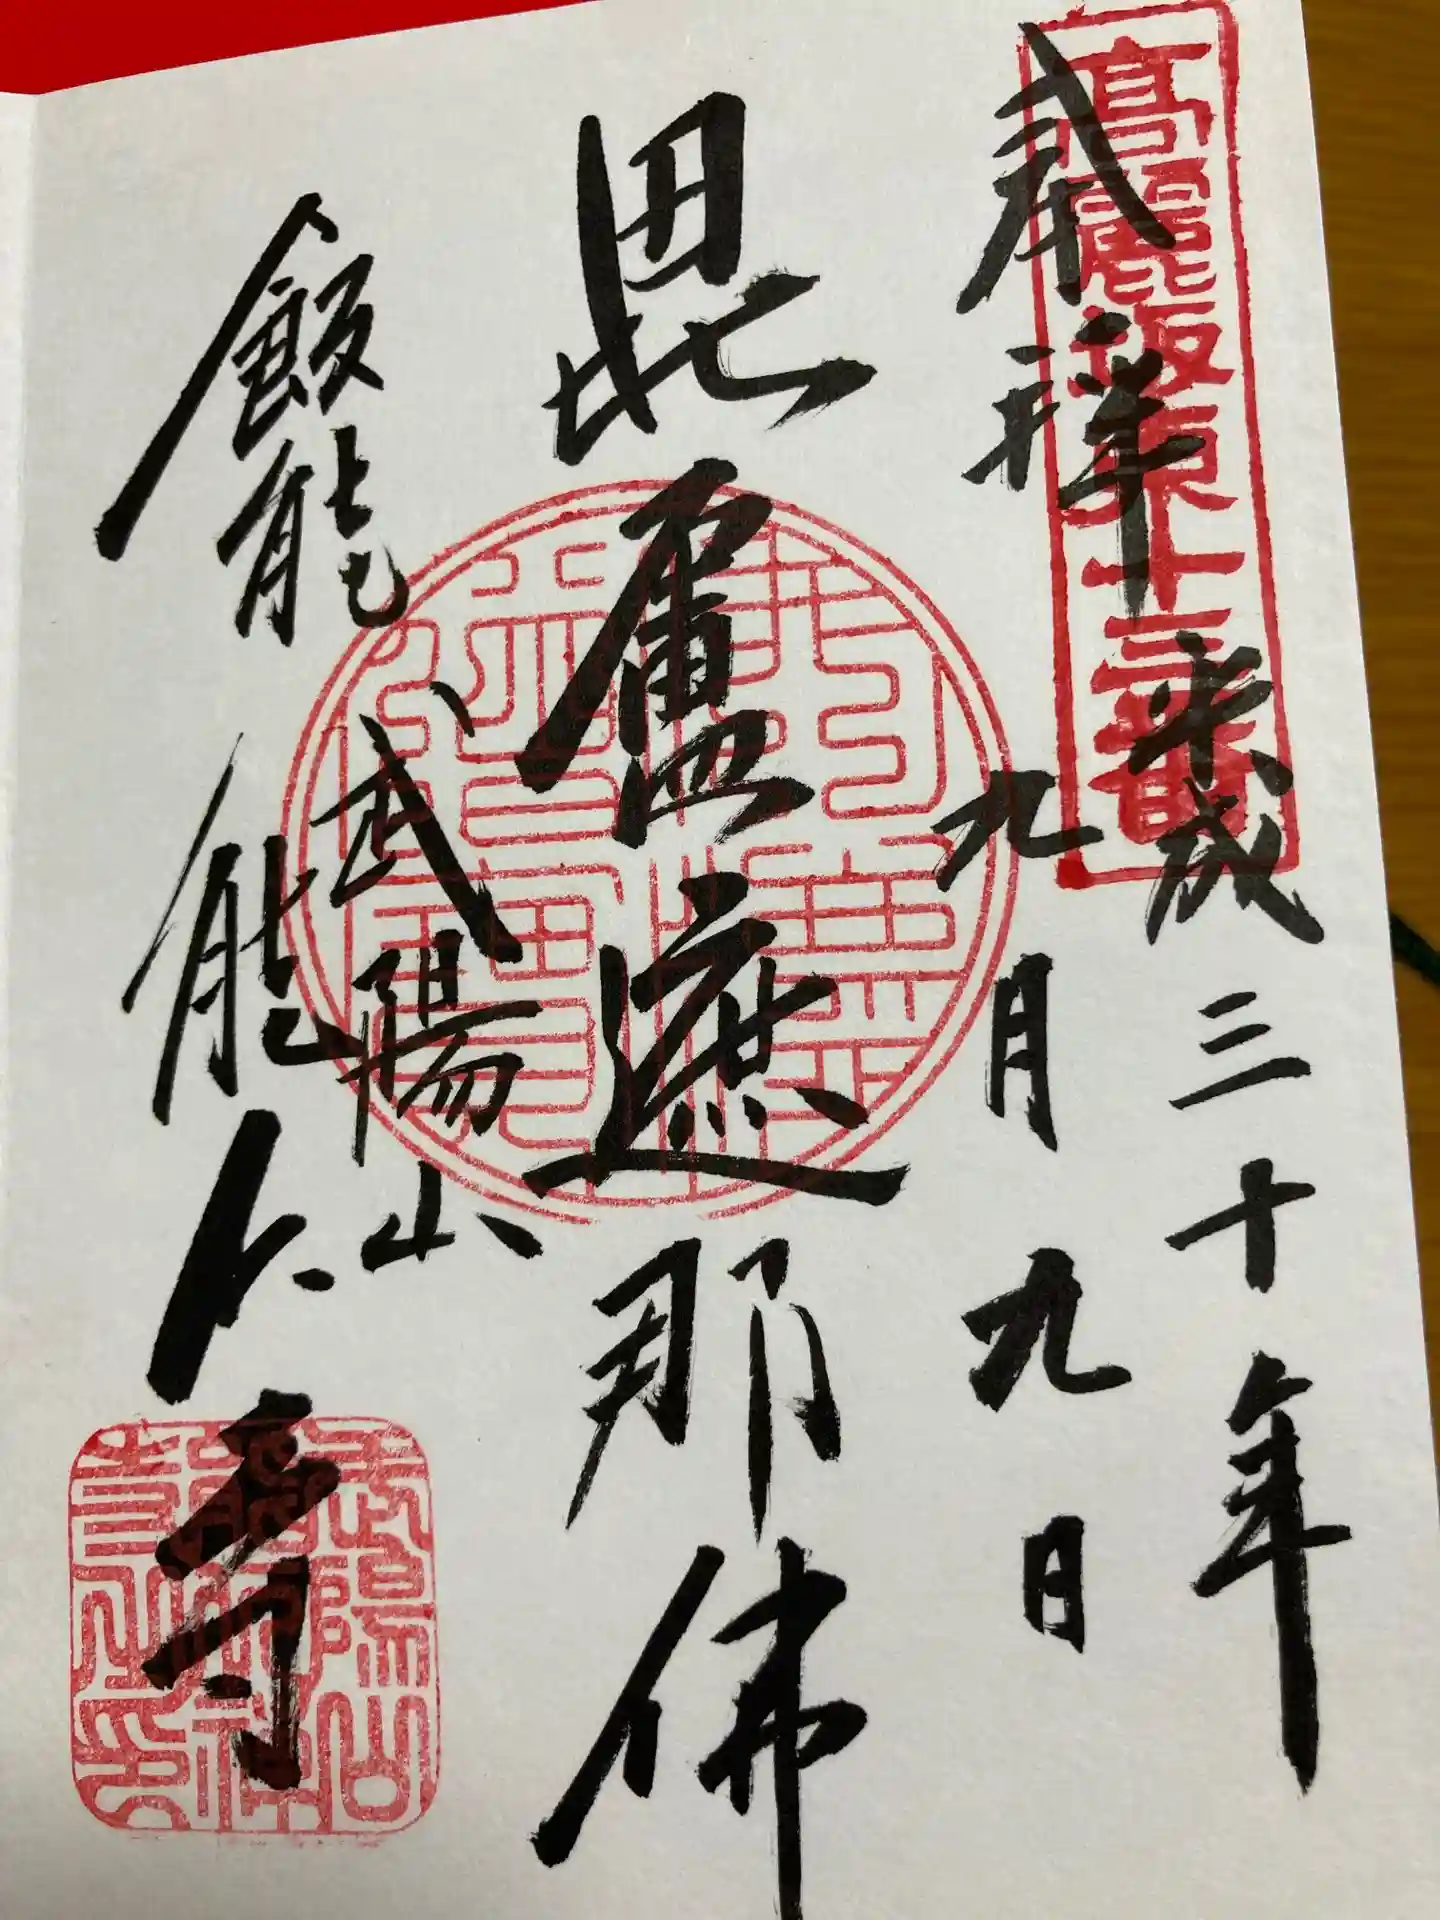 高麗坂東十三番
奉拝
平成三十年
九月九日
毘盧遮那佛
武陽山
飯能
能仁寺